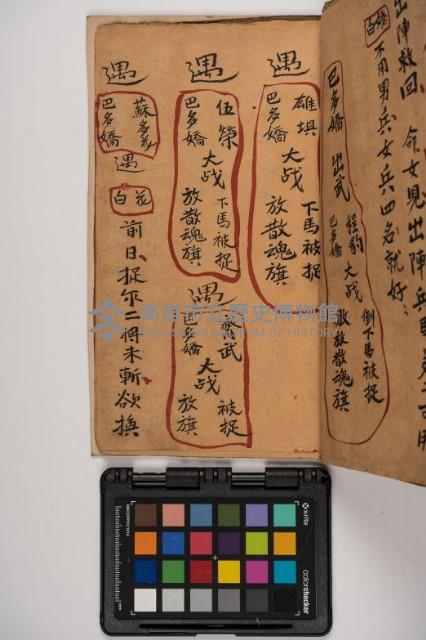 出陣敕回
命女見出陣兵
白嬌
不用男兵女兵四名就好
巴多嬌 出武
巴多嬌 大战 倒下馬被捉
放散魂旗
遇
雄埧
巴多嬌
大战 下馬被捉
放散魂旗
遇
伍榮
巴多嬌
大战 下馬被捉
放散魂旗
遇
武
多嬌
大战 被捉
放旗
遇
蘇多
巴多嬌
遇
白花
前日捉年二将未斬欲換
高雄市立歷史博物館
KAOHSIUNG MUSEUM OF HISTORY
x-rite
colorchecker